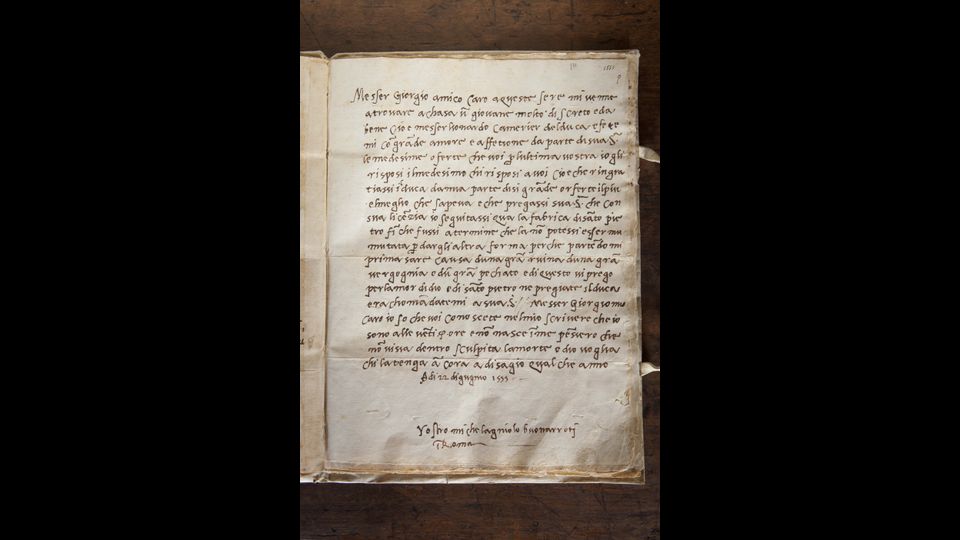 1555
Messer Giorgio amico caro a queste sere mi venne
a trovare a chasa ū giovane molto discreto e da
bene cioe messer lionardo camerier del duca e fece
mi cō grāde amore e affetione da parte di sua S.
le medesime oferte che voi p lultima vostra io gli
risposi il medesimo chi risposi a voi cioe che ringra
tiassi il duca da mia parte di si grāde oferte il piu
el meglio che sapeva e che pregassi sua S. che con
sua licēzia io seguitassi qua la fabrica di sāto pie
tro fī che fussi a termine che la nō potessi esser mu
mutata p dargli altra forma perche partēdomi
prima sare causa duna grā ruina duna grā
vergognia e dū grā pechato e di questo vi prego
per lamor di dio e di sāto pietro ne preghiate il duca
e rachomādatemi a sua S. Messer Giorgio mio
caro io so che voi conoscete nel mio scrivere che io
sono alle vēti ore e nō nasce ī me pēsiero che
nō vi sia dentro sculpita la morte e dio voglia
chi la tenga ācora a disagio qualche anno
A di 22 di giugnio 1555
Vostro michelagniolo buonarroti
ī Roma